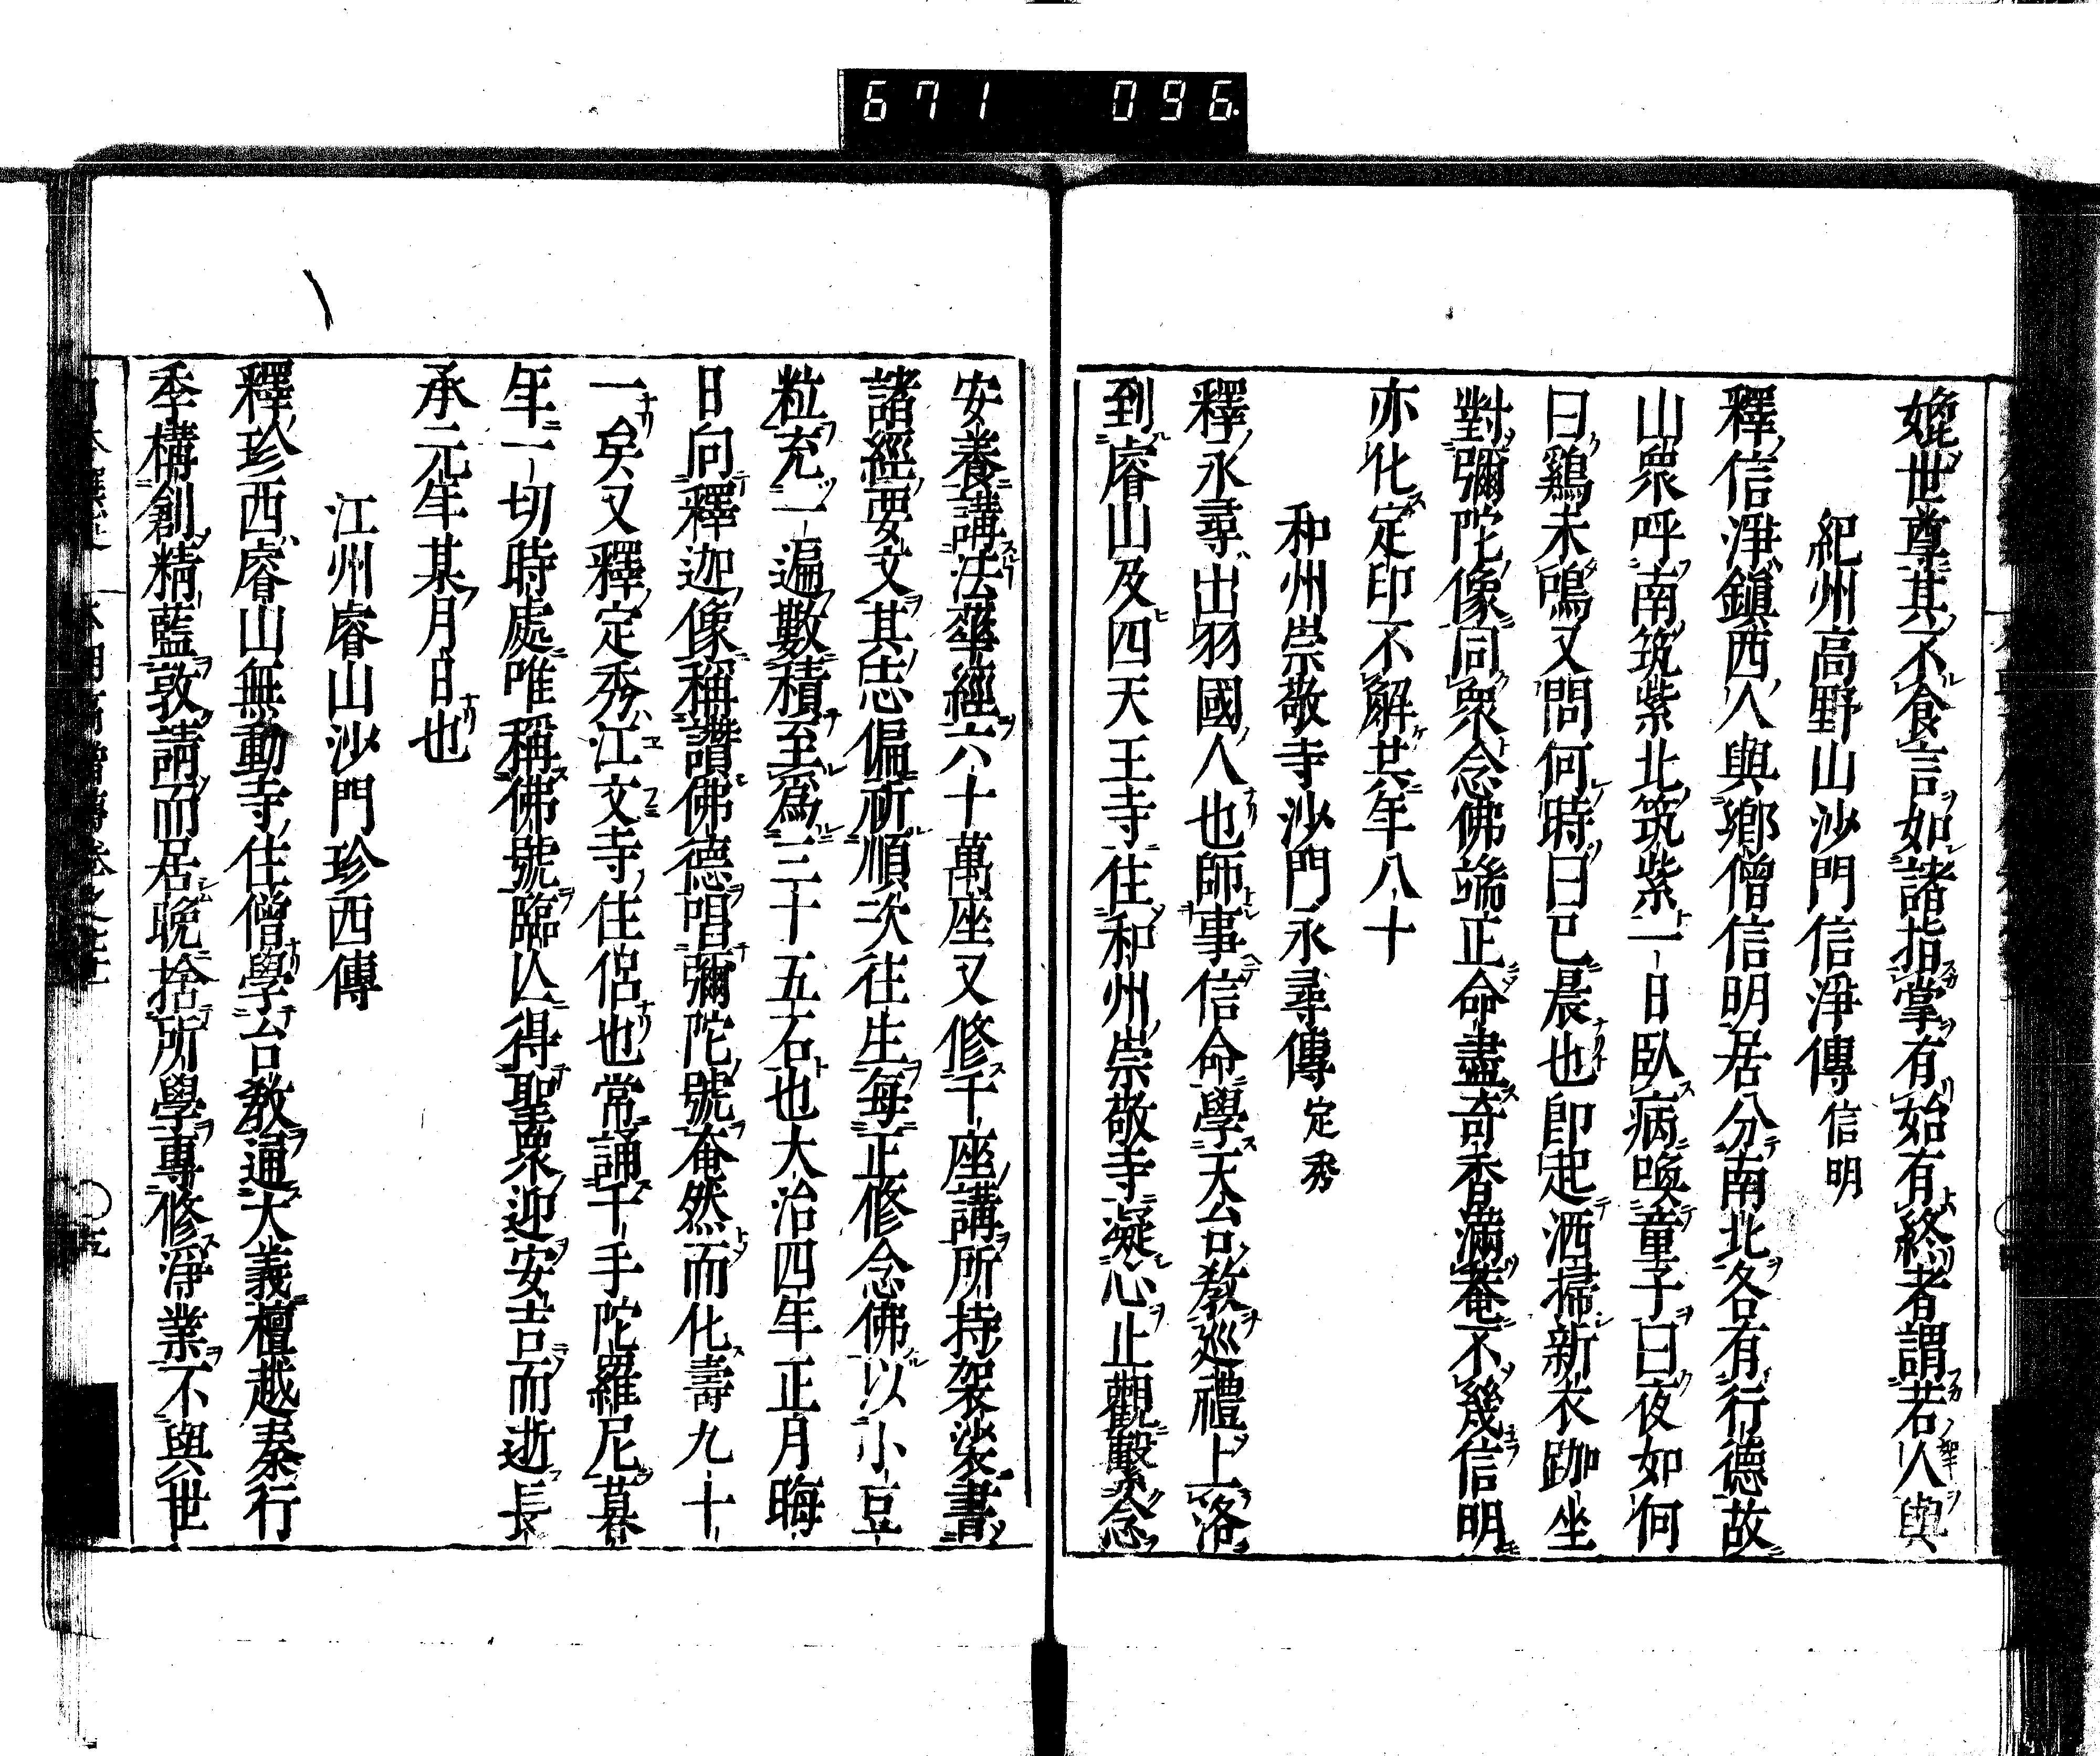 671 096
娩世尊其不食言如諸指掌有始有終者謂若人與
紀州高野山沙門信淨傳 信明
釋信淨鎭西人與鄉僧信明居分南北各有行德故
山衆呼南筑紫北筑紫一日臥病喚童子曰夜如何
曰鷄未鳴又問何時曰已晨也卽起洒掃新衣跏坐
對彌陀像同衆念佛端正命盡奇香滿菴不幾信明
亦化定印不解共年八十
和州崇敬寺沙門永尋傳 定秀
釋永尋出羽國人也師事信命學天台敎巡禮上洛
到睿山及四天王寺住和州崇敬寺凝心止觀繫念
安養講法華經六十萬座又修千座講所持袈裟書
諸經要文其志偏祈順次往生每正修念佛以小豆
粒充一遍數積至爲三十五石也大治四年正月晦
日向釋迦像稱讚佛德唱彌陀號奄然而化壽九十
一矣又釋定秀江文寺住侶也常誦千手陀羅尼暮
年一切時處唯稱佛號臨亾得聖衆迎安吉而逝長
承元年某月日也
江州睿山沙門珍西傳
釋珍西睿山無動寺住僧學台敎通大義檀越秦行
季構創精藍敦請而居晩捨所學專修淨業不與世